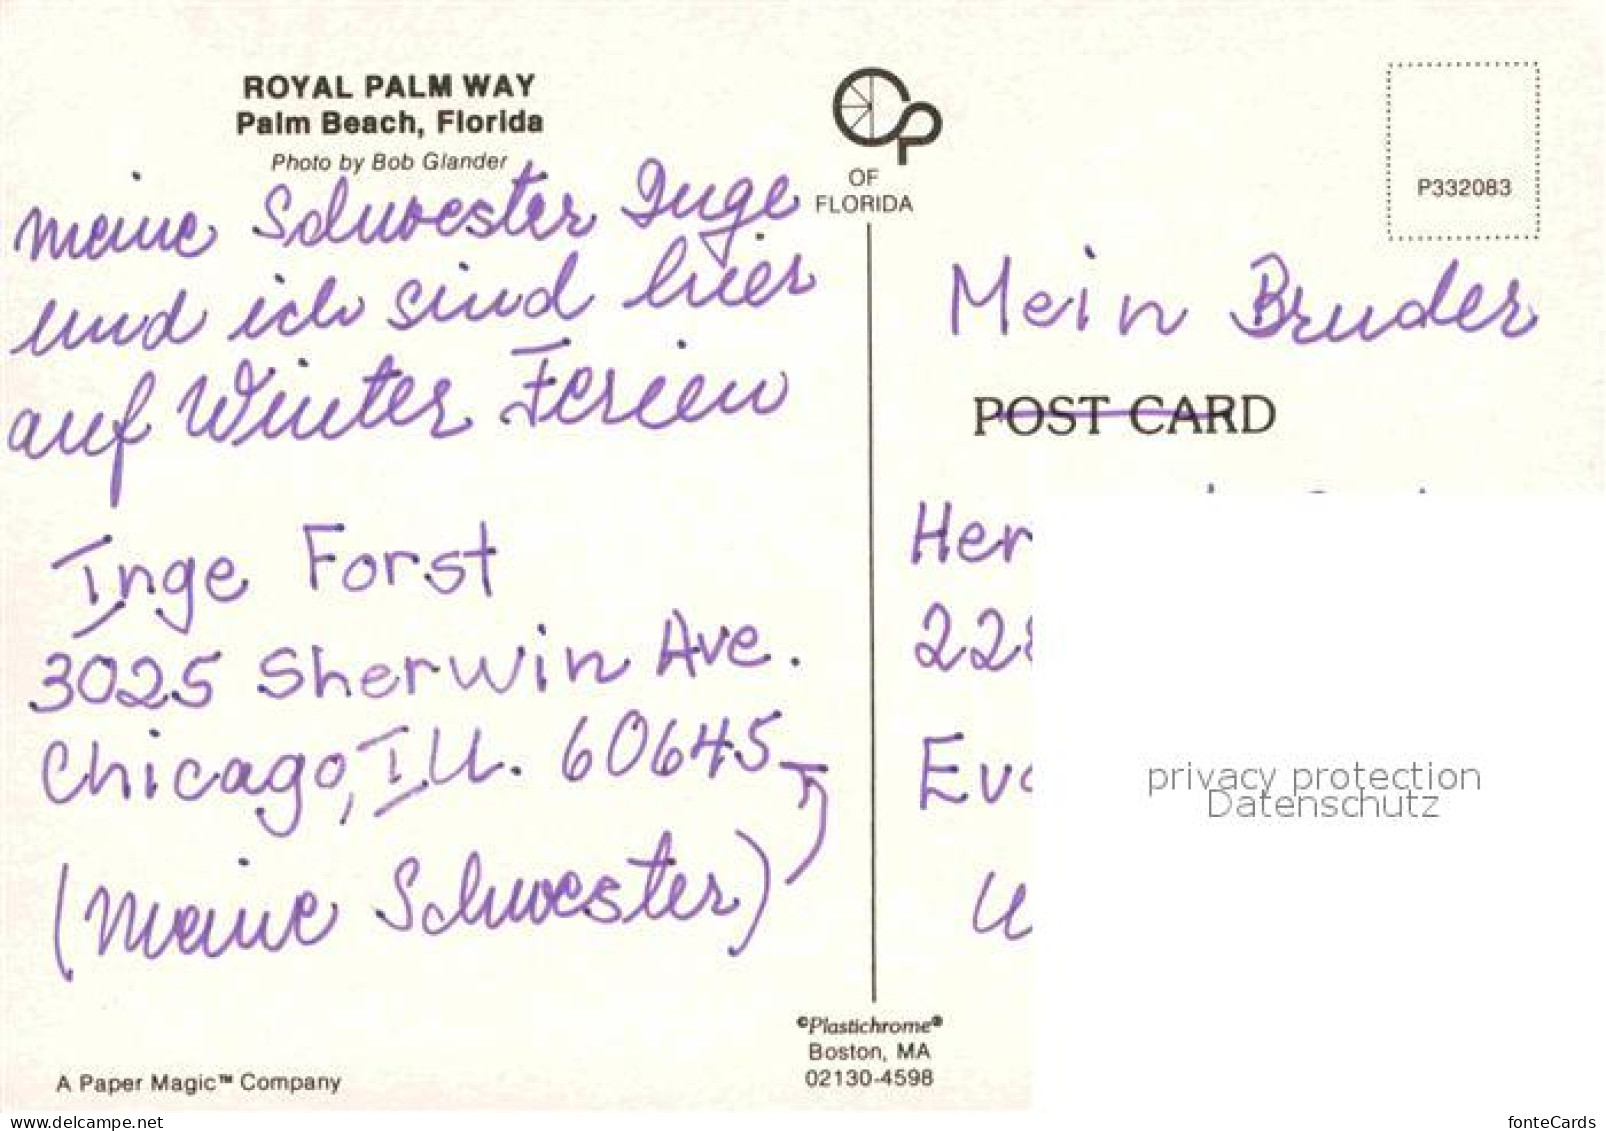 ROYAL PALM WAY
Palm Beach, Florida
Photo by Bob Glander
meine Schwester Inge
und ich sind hier
auf Winter Ferien
Inge Forst
3025 Sherwin Ave.
Chicago, Ill. 60645
(Meine Schwester)
A Paper Magic™ Company
OF
FLORIDA
©Plastichrome®
Boston, MA
02130-4598
P332083
Mein Bruder
POST CARD
Her
22
Eva
privacy protection
Datenschutz
www.delcampe.net
fonteCards